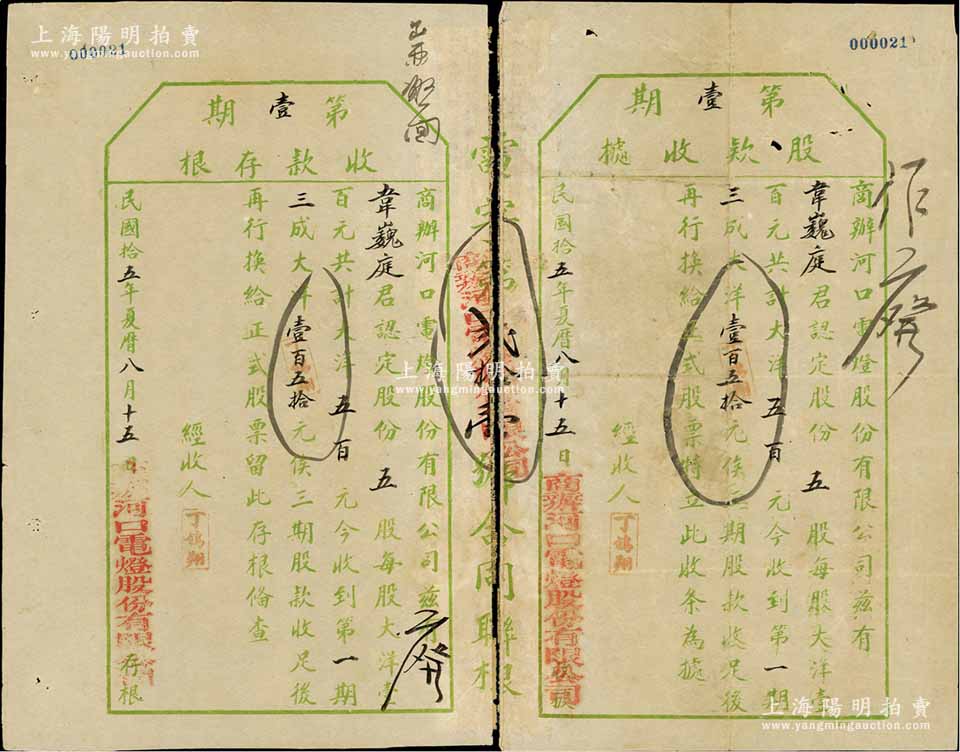 000021
股款收據
第壹期
商辦河口電燈股份有限公司茲有
韋巍庭君認定股份五股每股大洋壹
百元共計大洋五百元今收到第一期
三成大洋壹百五十元俟三期股款收足後
再行換給正式股票特立此收条為據
經收人
丁鴻翔
民國拾五年夏曆八月十五日
商辦河口電燈股份有限公司
作廢
電字第貳拾壹號合同聯根
商辦河口電燈股份有限公司
000021
收款存根
第壹期
商辦河口電燈股份有限公司茲有
韋巍庭君認定股份五股每股大洋壹
百元共計大洋五百元今收到第一期
三成大洋壹百五拾元俟三期股款收足後
再行換給正式股票留此存根俻查
經收人
丁鴻翔
民國拾五年夏曆八月十五日
河口電燈股份有限公司
存根
廢
上海陽明拍賣
www.yangmingauction.com
上海陽明拍賣
www.yangmingauction.com
上海陽明拍賣
www.yangmingauction.com